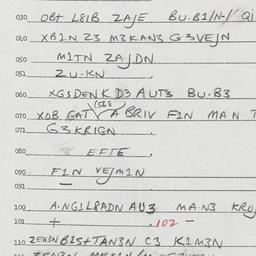 030 OBT L81B ZAJE BU·B1/N-/ Qi
040 XB1N Z3 M3KAN3 G3VEJN
050 M1TN ZAJDN
051 ZU·KN
060 XG3DENK D3 AUT3 BU·B3
070 XOB GAT (568) A BRIV F1N MAN T
071 G3KRIGN
080 EFTE
090 F1N VEJM1N
091
100 A·NG1L8ADN AU3 MA·N3 KROJ
101 + 102 –
110 ZEN3N B1S+TAN3N C3 K1M3N